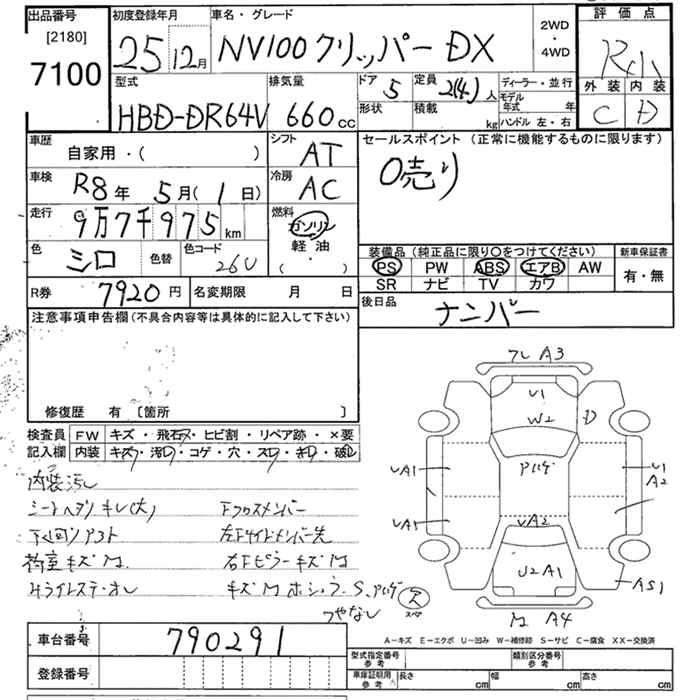 出品番号 初度登録年月 車名・グレード 2WD・4WD 評価点
[2180]
7100
25 12月 NV100クリッパー DX R小
型式 排気量 ドア 5 定員 2(4)人 ディーラー・並行
モデル年式 年
外装 内装
HBD-DR64V 660cc 形状 積載 kg ハンドル 左・右
C D
車歴 自家用・( ) シフト AT
セールスポイント(正常に機能するものに限ります)
0売り
車検 R8年 5月(1日) 冷房 AC
走行 9万7千975km 燃料 ガソリン 軽油 ( ・ )
色 シロ 色替 色コード 26U
装備品(純正品に限り○をつけてください) 新車保証書
PS PW ABS エアB AW 有・無
SR ナビ TV カワ
R券 7920円 名変期限 月 日
後日品 ナンバー
注意事項申告欄(不具合内容等は具体的に記入して下さい)
修復歴 有 〔箇所 〕
検査員 FW キズ・飛石・ヒビ割・リペア跡・×要
記入欄 内装 キズ・汚・コゲ・穴・スレ・キレ・破
内装汚し
シートヘタリ キレ(大) Fクロスメンバー
下廻リ 左Fサイドメンバー先
荷室キズM 右Fピラーキズ M
キズM
つやなし
フレ A3
U1
W2
D
Pハゲ
UA1
U1
A2
UA1
UA2
U2A1
AS1
A4
A-キズ E-エクボ U-凹み W-補修跡 S-サビ C-腐食 XX-交換済
車台番号 790291
型式指定番号 参考 類別区分番号 参考
登録番号
車庫証明用 参考 長さ cm 幅 cm 高さ cm